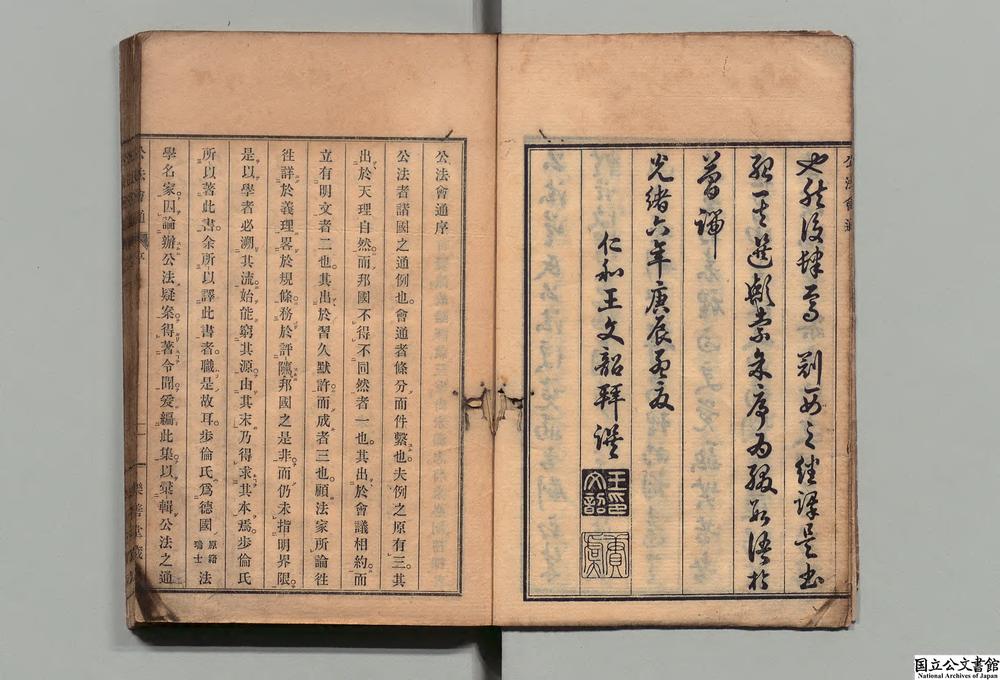 公法會通
之繼譯是書
索余序為綴數語於
簡端
光緒六年庚辰孟夏
仁和王文韶拜譔
王文韶印
公法會通序
公法者諸國之通例也會通者條分而件繫也夫例之原有三其
出於天理自然而邦國不得不同然者一也其出於會議相約而
立有明文者二也其出於習久默許而成者三也顧法家所論徃
徃詳於義理畧於規條務於評隲邦國之是非而仍未指明界限
是以學者必溯其流始能窮其源由其末乃得求其本焉步倫氏
所以著此書余所以譯此書者職是故耳步倫氏爲德國原籍瑞士法
學名家因論辦公法疑案得著令聞爰編此集以彙輯公法之通
公法會通
序
樂善堂藏
国立公文書館
National Archives of Japan